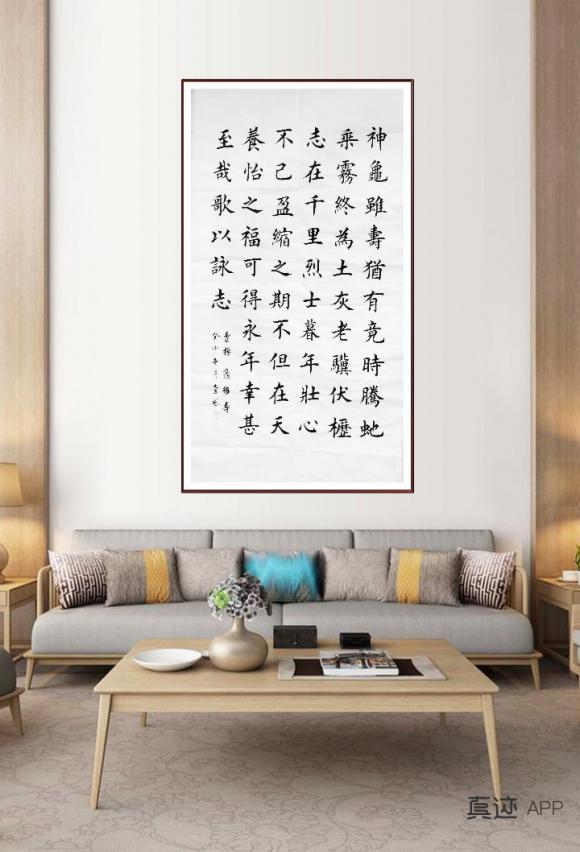 神龜雖壽猶有竟時騰虵
乘霧終為土灰老驥伏櫪
志在千里烈士暮年壯心
不已盈縮之期不但在天
養怡之福可得永年幸甚
至哉歌以詠志
真迹 APP